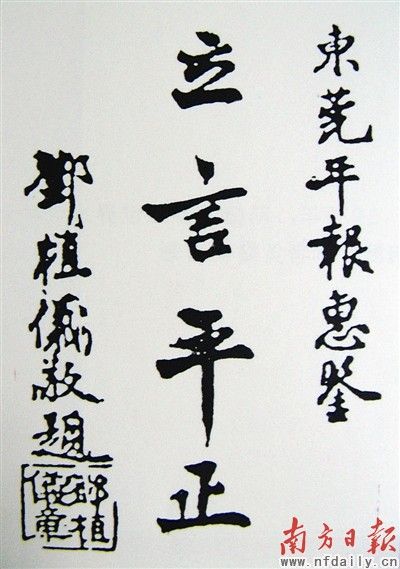 東莞年報惠鑒
立言平正
鄧植儀敬題
鄧植
儀章
南方日報
www.nfdaily.cn